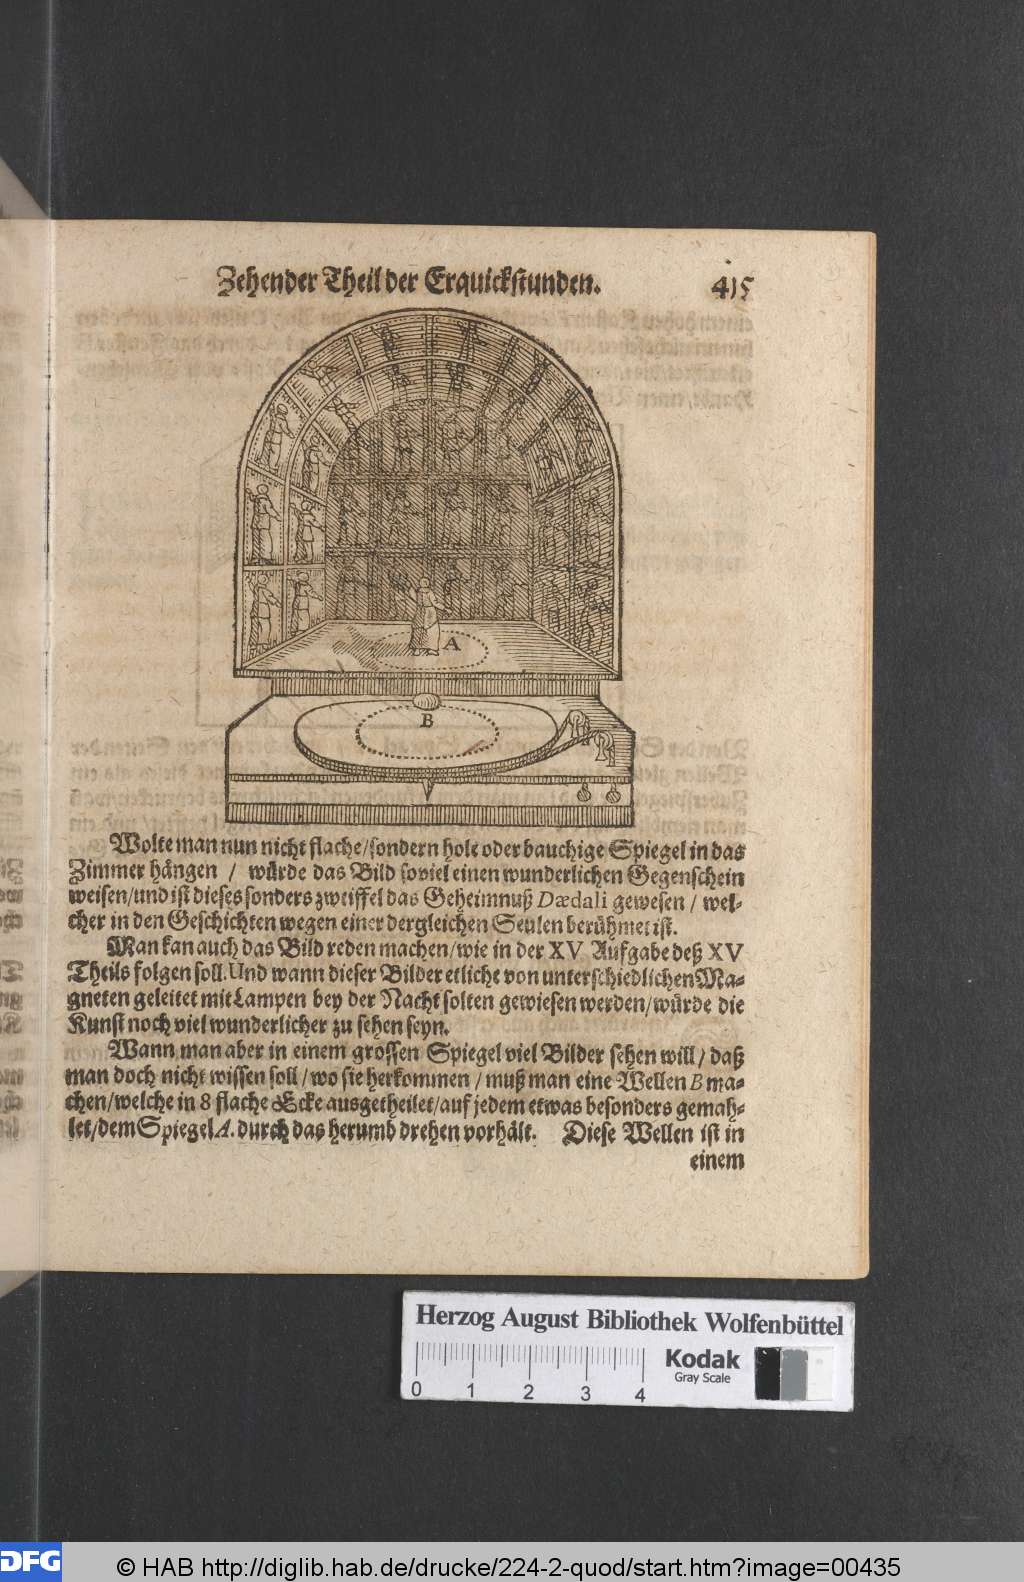 Zehender Theil der Erquickstunden. 415
A
B
Wolte man nun nicht flache/sondern hole oder bauchige Spiegel in das
Zimmer hängen / würde das Bild soviel einen wunderlichen Gegenschein
weisen/und ist dieses sonders zweiffel das Geheimnuß Dædali gewesen / wel-
cher in den Geschichten wegen einer dergleichen Seulen berühmet ist.
Man kan auch das Bild reden machen/wie in der XV Aufgabe deß XV
Theils folgen soll. Und wann dieser Bilder etliche von unterschiedlichen Ma-
gneten geleitet mit Lampen bey der Nacht solten gewiesen werden/würde die
Kunst noch viel wunderlicher zu sehen seyn.
Wann man aber in einem grossen Spiegel viel Bilder sehen will / daß
man doch nicht wissen soll / wo sie herkommen / muß man eine Wellen B ma-
chen/welche in 8 flache Ecke ausgetheilet/auf jedem etwas besonders gemah-
let/dem Spiegel A. durch das herumb drehen vorhält. Diese Wellen ist in
einem
Herzog August Bibliothek Wolfenbüttel
0 1 2 3 4
Kodak
Gray Scale
DFG
© HAB http://diglib.hab.de/drucke/224-2-quod/start.htm?image=00435